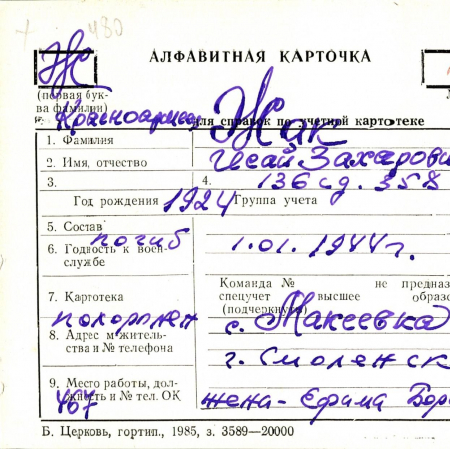 480
АЛФАВИТНАЯ КАРТОЧКА
Ж
(первая бук-
ва фамилии)
Красноармеец для справок по учетной картотеке
1. Фамилия Жак
2. Имя, отчество Исай Захарови
3. 4. 136 сд. 358
Год рождения 1924 Группа учета
5. Состав
погиб 1.01.1944г.
6. Годность к воен-
службе
Команда № не предназ
7. Картотека спецучет высшее образо
(подчеркнуть)
похоронен с. Макеевка
8. Адрес м/житель-
ства и № телефона г. Смоленск
9. Место работы, дол-
жность и № тел. ОК
467 жена - Ефима Бор
Б. Церковь, гортип., 1985, з. 3589—20000